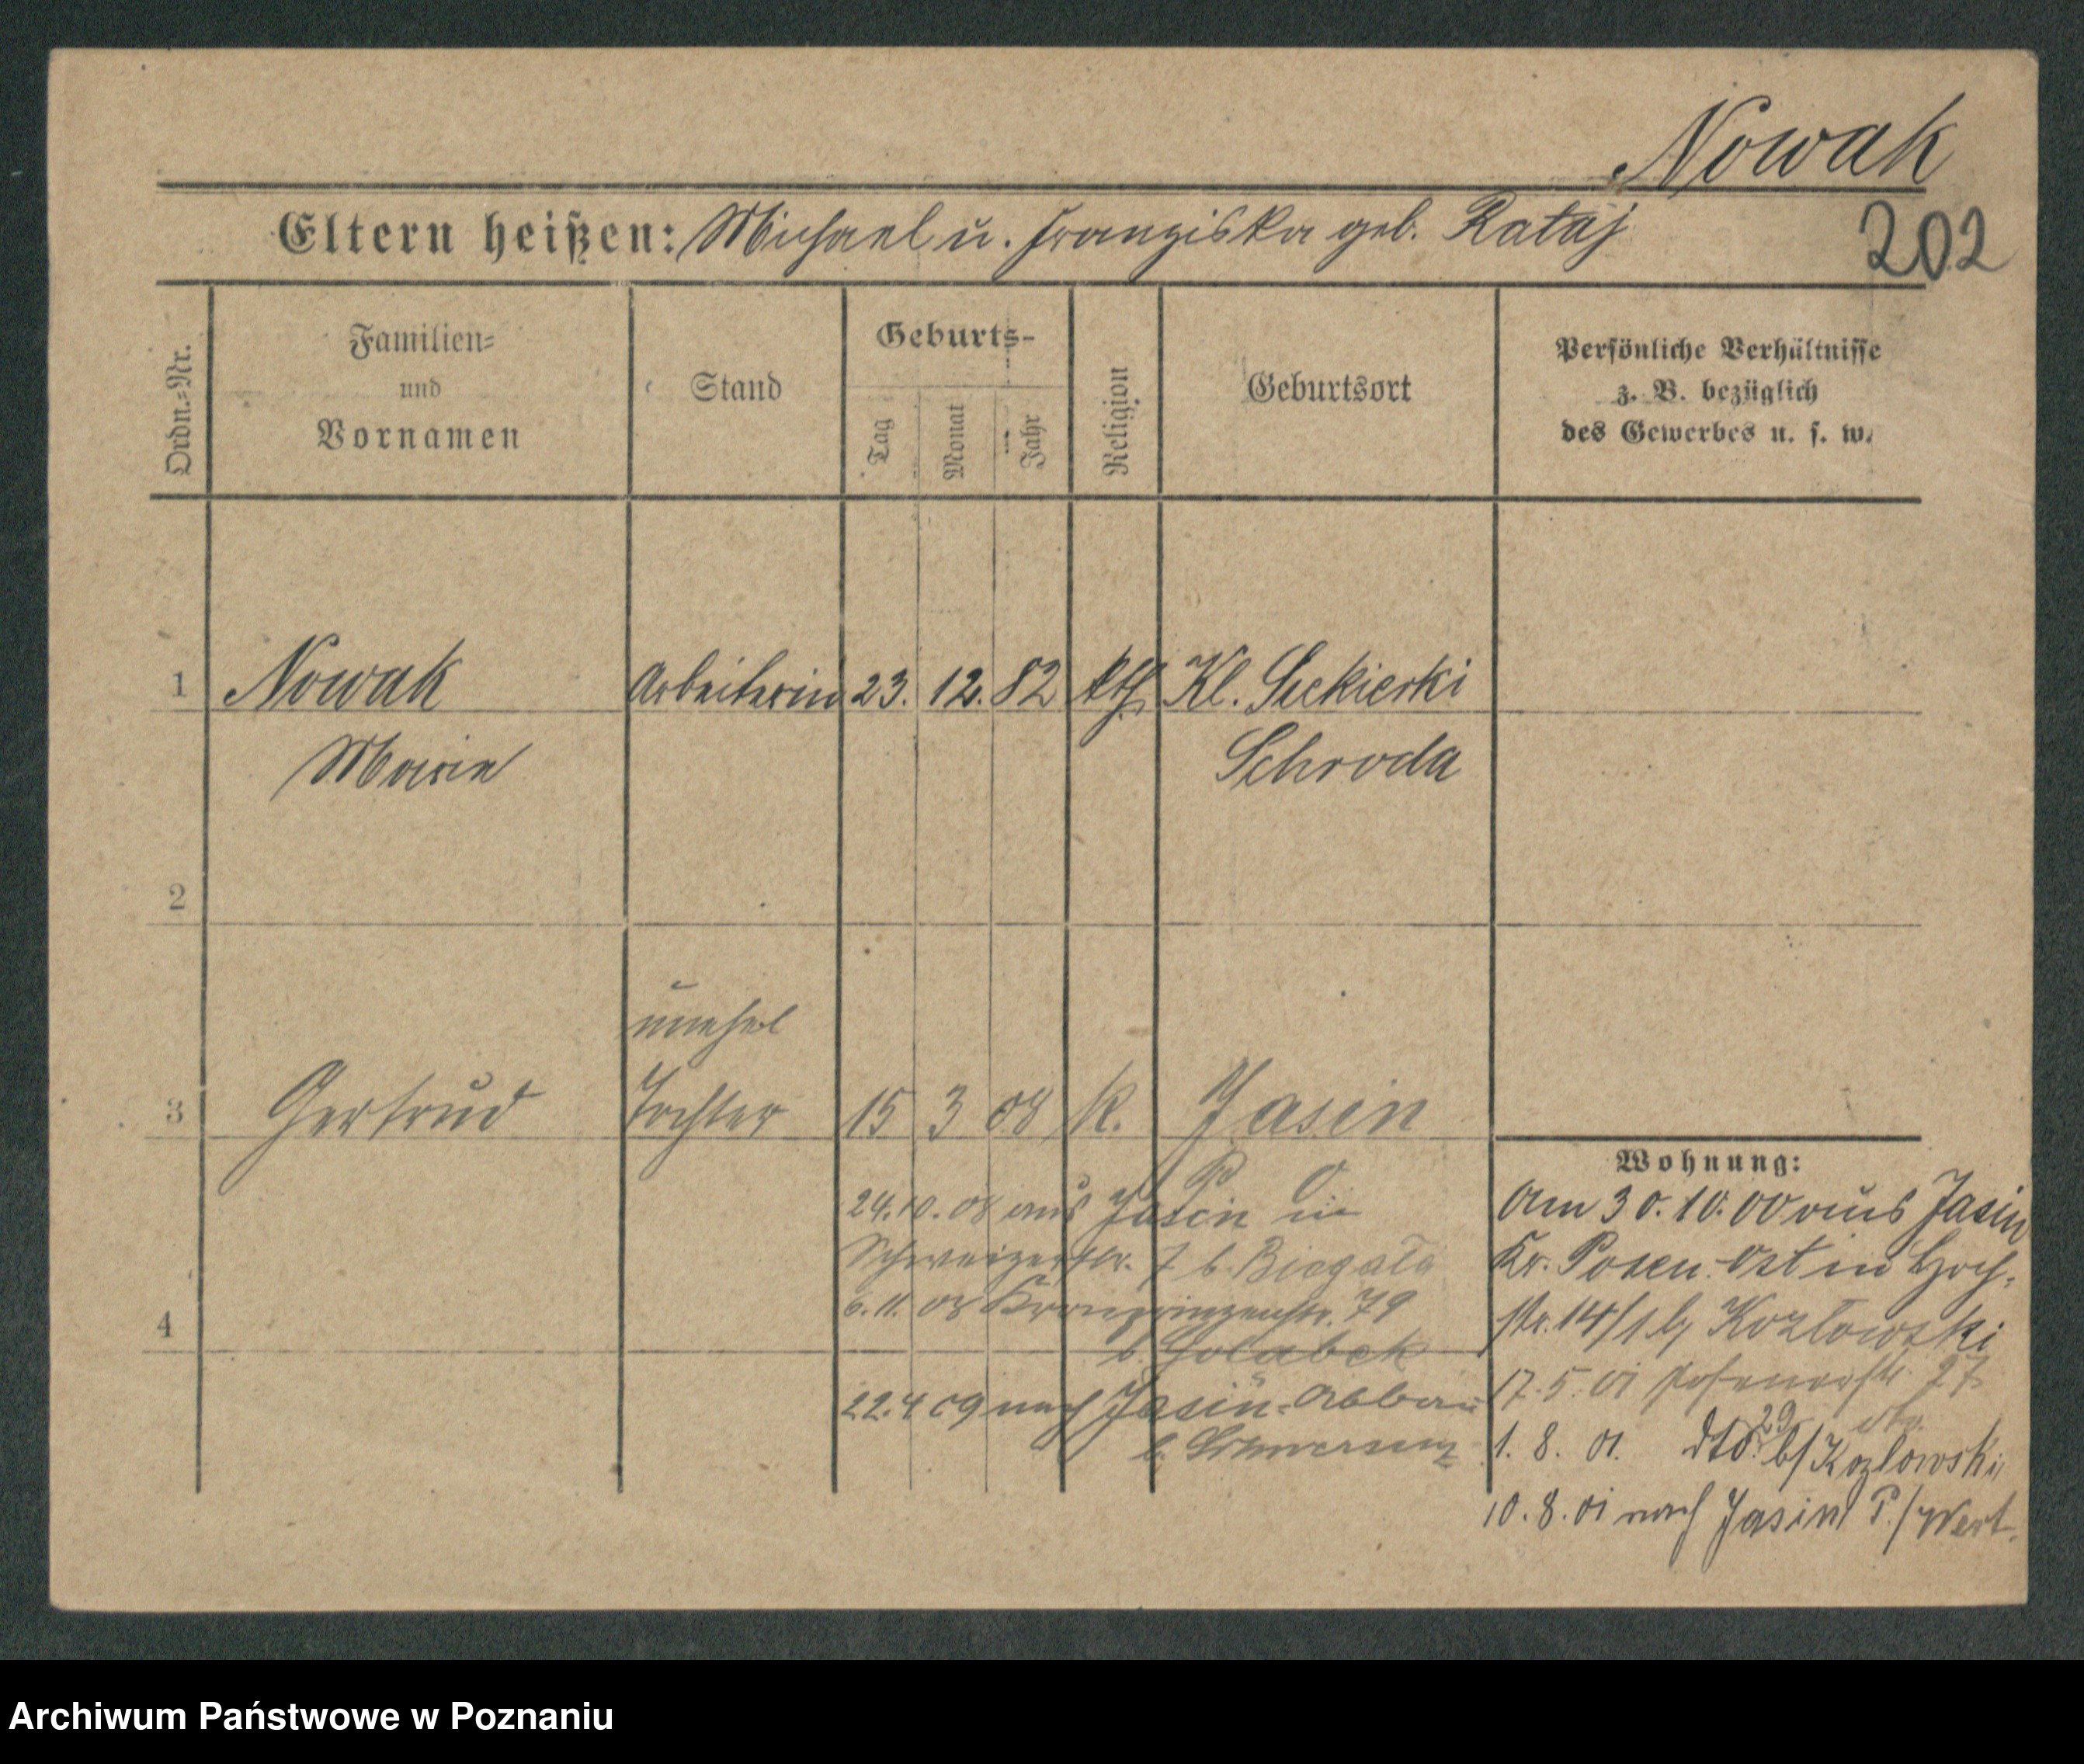 Nowak
Eltern heißen: Michael u. Franziska geb. Rataj
202
Ordn.-Nr.
Familien-
und
Vornamen
Stand
Geburts-
Tag
Monat
Jahr
Religion
Geburtsort
Persönliche Verhältnisse
z. B. bezüglich
des Gewerbes u. s. w.
1 Nowak Arbeiterin 23. 12. 82 kth. Kl. Siekierki
Marie Schroda
2
unehel
3 Gertrud Tochter 15 3 08 k. Jasin
Wohnung:
P O
24.10.08 aus Jasin in
Schweizerstr. 7 b. Biegała
6.11.08 Kronprinzenstr. 79
4
b. Golabek
22.4 09 nach Jasin-Abbau
b. Schwersenz
Am 30.10.00 aus Jasin
Kr. Posen-Ost in Hoch-
str. 14/1 bj Kozlowski
17.5.01 Posenerstr. 27
1. 8. 01. dto. 29 b/Kozlowski
10.8.01 nach Jasin P./West.
Archiwum Państwowe w Poznaniu